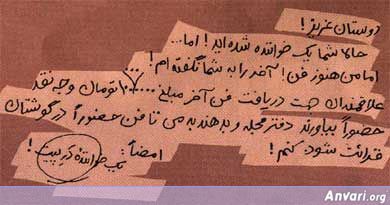 دوستان عزیز!
حالا شما یک خواننده شده اید! اما...
اما من هنوز فن آخر را به شما نگفته ام!
علاقمندان جهت دریافت فن آخر مبلغ ۱۰۰۰۰ تومان وجه نقد
حضوراً بیاورند دفتر مجله و بدهند به من تا فن حضوراً در گوشتان
قرائت شود کنم!
امضأ: یک خوانندهٔ کبیر!
Anvari.org